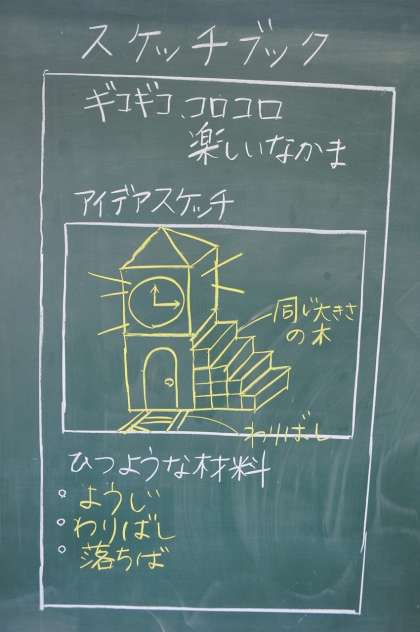 スケッチブック
ギコギコ、コロコロ
楽しいなかま
アイデアスケッチ
同じ大きさ
の木
わりばし
ひつような材料
。ようじ
。わりばし
。落ちば